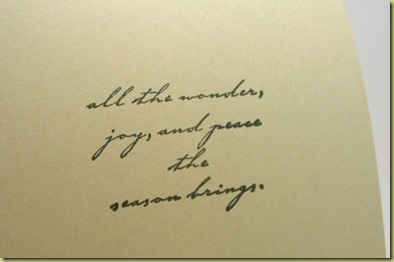 all the wonder,
joy, and peace
the
season brings.